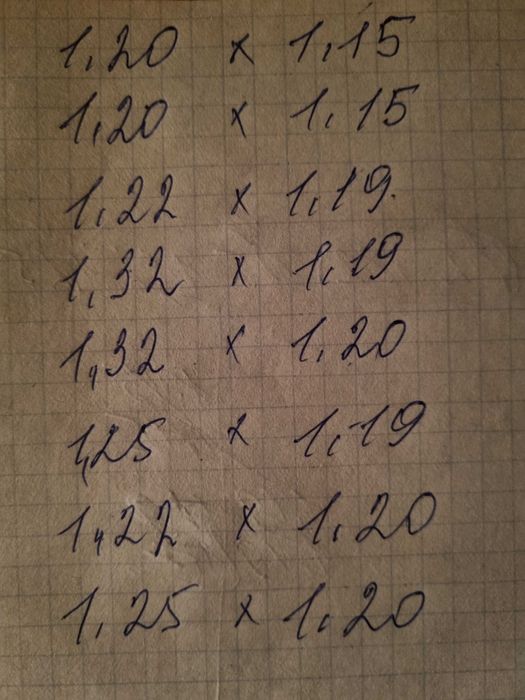 1,20 x 1,15
1,20 x 1,15
1,22 x 1,19.
1,32 x 1,19
1,32 x 1,20
1,25 x 1,19
1,22 x 1,20
1,25 x 1,20